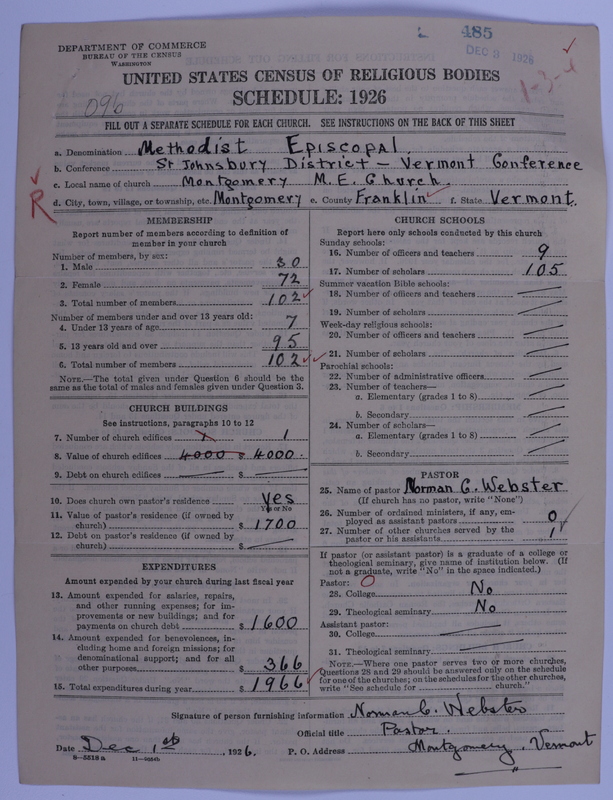 485
DEC 3 1926
DEPARTMENT OF COMMERCE
BUREAU OF THE CENSUS
WASHINGTON
UNITED STATES CENSUS OF RELIGIOUS BODIES
SCHEDULE: 1926
1-3-4
096
FILL OUT A SEPARATE SCHEDULE FOR EACH CHURCH. SEE INSTRUCTIONS ON THE BACK OF THIS SHEET
a. Denomination Methodist Episcopal.
b. Conference St Johnsbury District – Vermont Conference
c. Local name of church Montgomery M. E. Church.
d. City, town, village, or township, etc. Montgomery e. County Franklin f. State Vermont.
R
MEMBERSHIP
Report number of members according to definition of
member in your church
Number of members, by sex:
1. Male 30
2. Female 72
3. Total number of members 102
Number of members under and over 13 years old:
4. Under 13 years of age 7
5. 13 years old and over 95
6. Total number of members 102
NOTE.—The total given under Question 6 should be the
same as the total of males and females given under Question 3.
CHURCH BUILDINGS
See instructions, paragraphs 10 to 12
7. Number of church edifices 1 1
8. Value of church edifices 4000 $ 4000.
9. Debt on church edifices $
10. Does church own pastor's residence Yes
Yes or No
11. Value of pastor's residence (if owned by
church) $ 1700
12. Debt on pastor's residence (if owned by
church) $
EXPENDITURES
Amount expended by your church during last fiscal year
13. Amount expended for salaries, repairs,
and other running expenses; for im-
provements or new buildings; and for
payments on church debt $ 1600
14. Amount expended for benevolences, in-
cluding home and foreign missions; for
denominational support; and for all
other purposes $ 366
15. Total expenditures during year $ 1966
CHURCH SCHOOLS
Report here only schools conducted by this church
Sunday schools:
16. Number of officers and teachers 9
17. Number of scholars 105
Summer vacation Bible schools:
18. Number of officers and teachers
19. Number of scholars
Week-day religious schools:
20. Number of officers and teachers
21. Number of scholars
Parochial schools:
22. Number of administrative officers
23. Number of teachers—
a. Elementary (grades 1 to 8)
b. Secondary
24. Number of scholars—
a. Elementary (grades 1 to 8)
b. Secondary
PASTOR
25. Name of pastor Norman C. Webster
(If church has no pastor, write "None")
26. Number of ordained ministers, if any, em-
ployed as assistant pastors 0
27. Number of other churches served by the
pastor or his assistants 1
If pastor (or assistant pastor) is a graduate of a college or
theological seminary, give name of institution below. (If
not a graduate, write "No" in the space indicated.)
Pastor: 0
28. College No
29. Theological seminary No
Assistant pastor:
30. College
31. Theological seminary
NOTE.—Where one pastor serves two or more churches,
Questions 28 and 29 should be answered only on the schedule
for one of the churches; on the schedules for the other churches,
write "See schedule for church."
Signature of person furnishing information Norman C. Webster
Official title Pastor.
Date Dec 1st, 1926. P. O. Address Montgomery, Vermont
8—5518 a